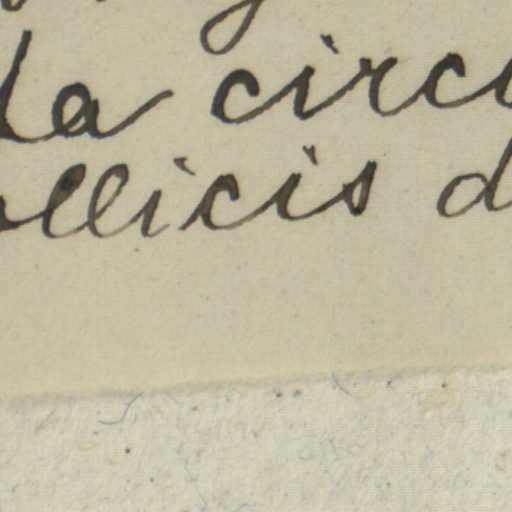 la circu
ollicis d